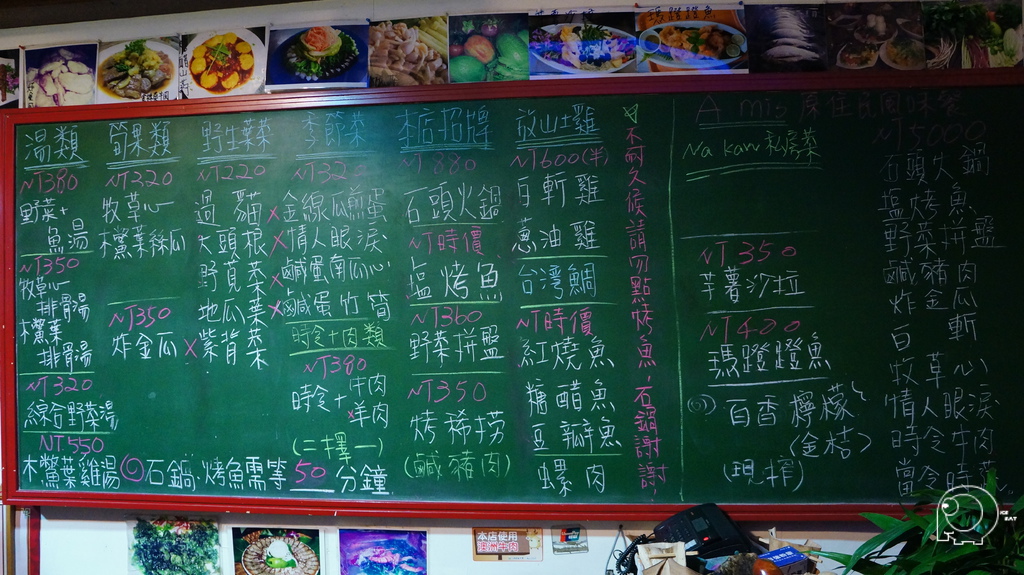 湯類
NT380
野菜+
魚湯
NT350
牧草心
排骨湯
木虌葉
排骨湯
NT320
綜合野菜湯
NT.550
木虌葉雞湯
筍果類
NT320
牧草心
木虌葉絲瓜
NT350
炸金瓜
野生葉菜
NT220
過貓
大頭根
野莧菜
地瓜葉
x紫背菜
季節菜
NT320
x金線瓜煎蛋
x情人眼淚
x鹹蛋南瓜心
x鹹蛋竹筍
時令+肉類
NT380
時令+牛肉
x羊肉
(二擇一)
◎石鍋.烤魚需等50分鐘
本店招牌
NT880
石頭火鍋
NT時價
塩烤魚
NT360
野菜拼盤
NT350
烤稀撈
(鹹豬肉)
放山土雞
NT600(半)
白斬雞
蔥油雞
台湾鯛
NT時價
紅燒魚
糖醋魚
豆瓣魚
螺肉
不耐久候請勿點烤魚,石鍋謝謝!
Amis原住民風味餐
Na kaw私房菜
NT350
芋薯沙拉
NT420
瑪蹬蹬魚
百香檸檬
(金桔)
(現榨)
NT5000
石頭火鍋
塩烤魚
野菜拼盤
鹹豬肉
炸金瓜
白斬
牧草心
情人眼淚
時令牛肉
當令時菜
本店使用
澳洲牛肉
ICE
EAT